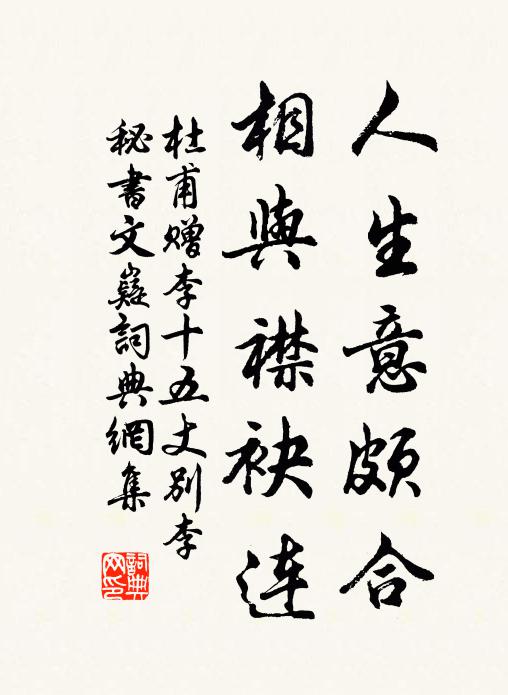 人生意頗合
相與襟袂連
杜甫贈李十五丈別李
秘書文嶷詞典網集
詞典網印